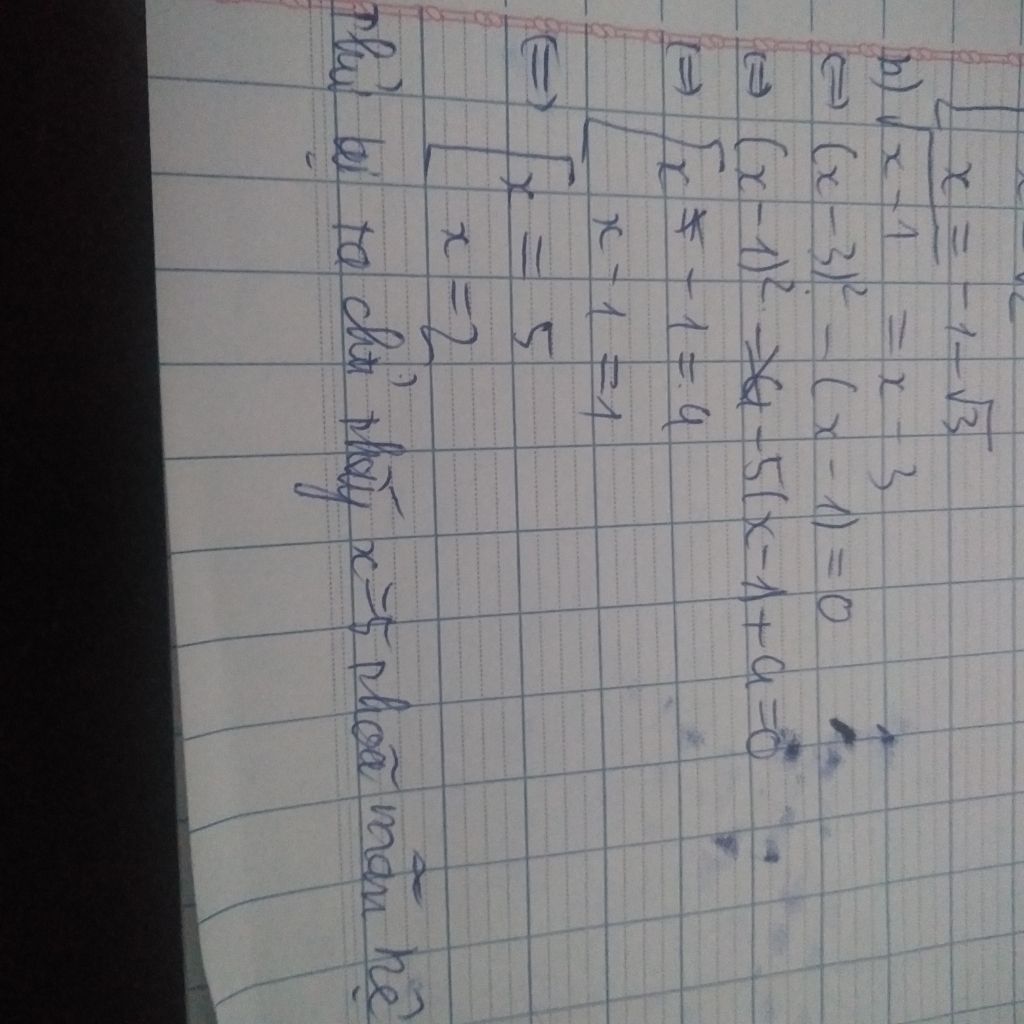 x = -1 - √3
b) √x-1 = x - 3
⇔ (x - 3)² - (x - 1) = 0
⇔ (x - 1)² - 5(x - 1 + 4 = 0
⇔ [ x - 1 = 4
x - 1 = 1
⇔ [ x = 5
[ x = 2
Thử lại ta chỉ thấy x = 5 thoã mãn hệ